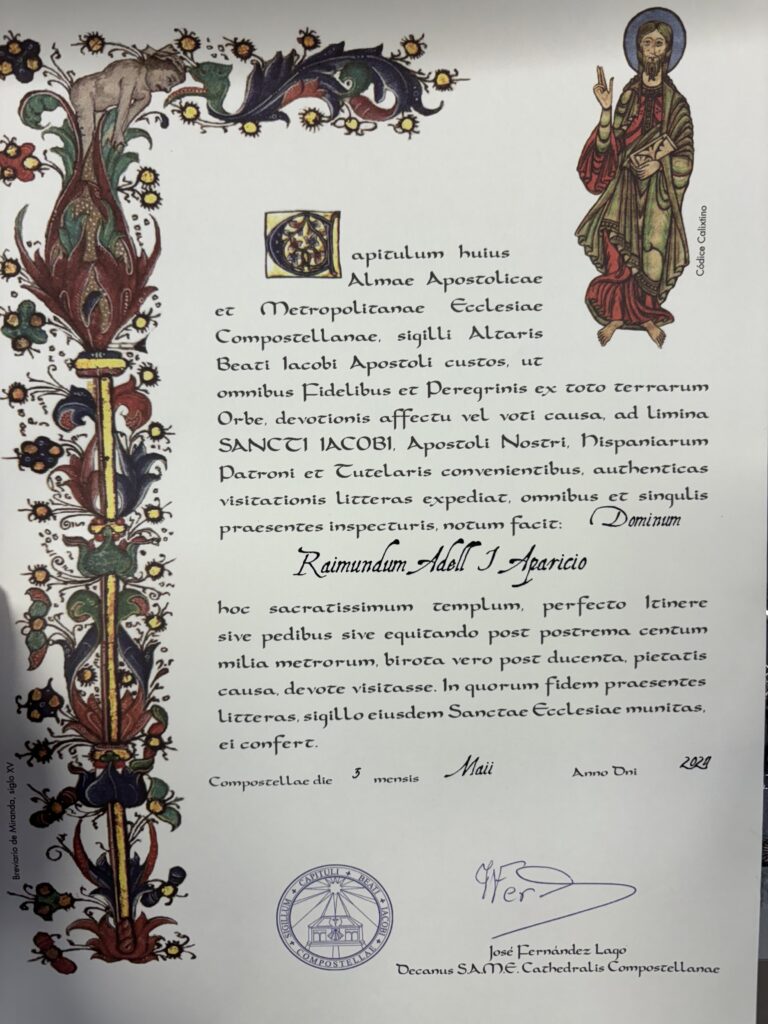 Códice Calixtino
Capitulum huius
Almae Apostolicae
et Metropolitanae Ecclesiae
Compostellanae, sigilli Altaris
Beati Iacobi Apostoli custos, ut
omnibus Fidelibus et Peregrinis ex toto terrarum
Orbe, devotionis affectu vel voti causa, ad limina
SANCTI IACOBI, Apostoli Nostri, Hispaniarum
Patroni et Tutelaris convenientibus, authenticas
visitationis litteras expediat, omnibus et singulis
praesentes inspecturis, notum facit: Dominum
Raimundum Adell I Aparicio
hoc sacratissimum templum, perfecto Itinere
sive pedibus sive equitando post postrema centum
milia metrorum, birota vero post ducenta, pietatis
causa, devote visitasse. In quorum fidem praesentes
litteras, sigillo eiusdem Sanctae Ecclesiae munitas,
ei confert.
Compostellae die 3 mensis Maii Anno Dni 2024
Breviario de Miranda, siglo XV
SIGILLUM + CAPITULI + BEATI + IACOBI + COMPOSTELLAE +
José Fernández Lago
Decanus S.A.M.E. Cathedralis Compostellanae